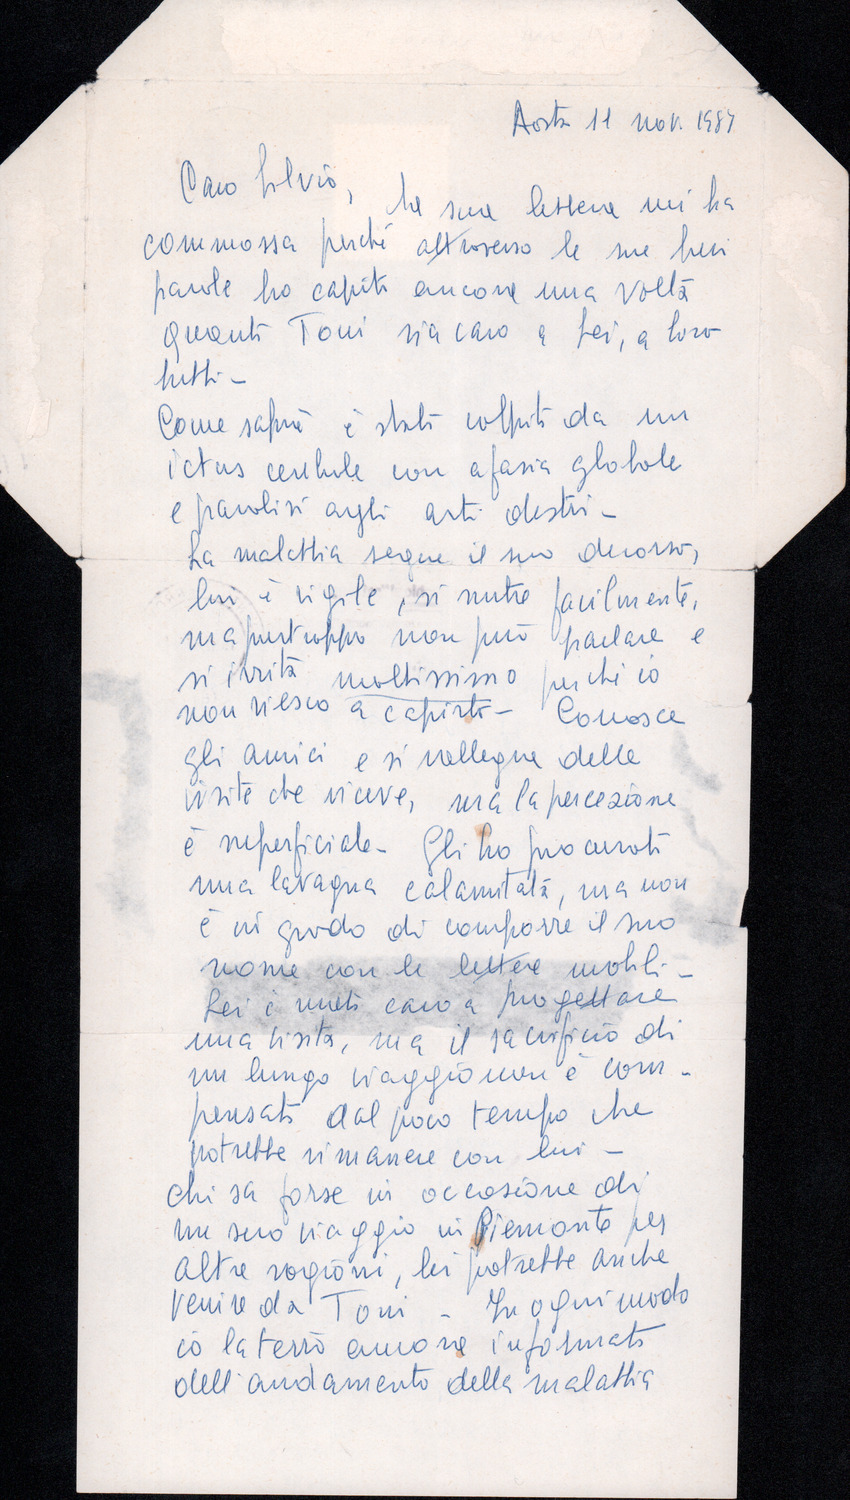 Aosta 11 nov. 1987
Caro Silvio,
la sua lettera mi ha
commossa perché attraverso le sue brevi
parole ho capito ancora una volta
quanto Toni sia caro a Lei, a loro
tutti –
Come saprà è stato colpito da un
ictus cerebrale con afasia globale
e paralisi agli arti destri –
La malattia segue il suo decorso,
lui è vigile, si nutre facilmente,
ma purtroppo non può parlare e
si irrita moltissimo perché io
non riesco a capirlo – Conosce
gli amici e si rallegra delle
visite che riceve, ma la percezione
è superficiale – Gli ho procurato
una lavagna calamitata, ma non
è in grado di comporre il suo
nome con le lettere mobili –
Lei è molto caro a progettare
una visita, ma il sacrificio di
un lungo viaggio non è com-
pensato dal poco tempo che
potrebbe rimanere con lui –
chi sa forse in occasione di
un suo viaggio in Piemonte per
altre ragioni, lei potrebbe anche
venire da Toni – In ogni modo
io la terrò ancora informato
dell'andamento della malattia